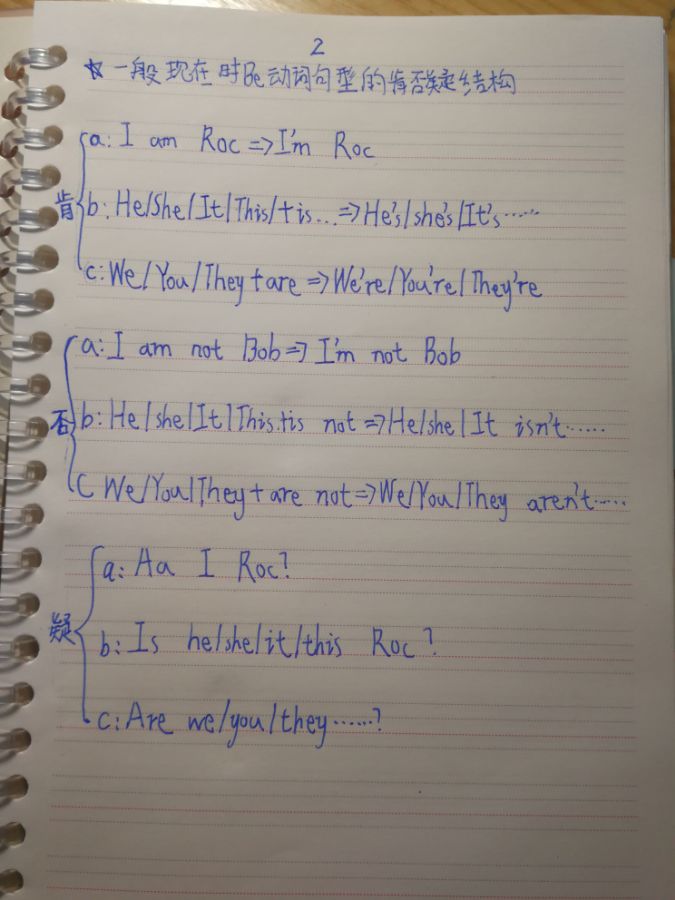 2
☆一般现在时Be动词句型的肯否疑结构
a: I am Roc => I'm Roc
肯 b: He/She/It/This/+is... => He's/she's/It's······
c: We/You/They+are => We're/You're/They're
a: I am not Bob => I'm not Bob
否 b: He/she/It/This.+is not => He/she/It isn't······
C We/You/They+are not => We/You/They aren't·····
a: Aa I Roc?
疑 b: Is he/she/it/this Roc?
c: Are we/you/they······?